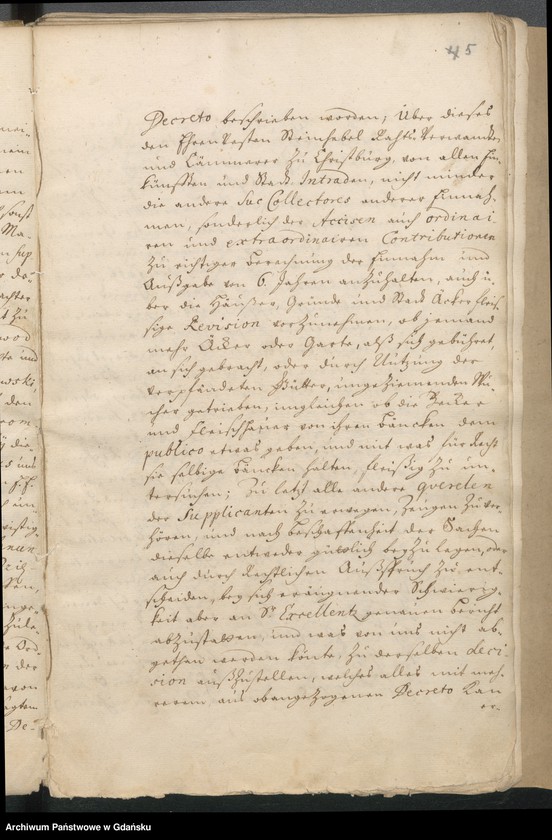 45
Decreto beschrieben worden; Über dieses
den Ehrenvesten Steinhebel Rahts Verwandten
und Cämmerer zu Christburg, von allen Ein-
künfften und Stadt Intraden, nicht minder
die andere Suc Collectores anderer Einnah-
men, sonderlich der Accisen auch ordinai-
ren und extraordinairen Contributionen
zu richtiger berechnung der Einnahm und
Außgabe von 6. Jahren anzuhalten, auch ü-
ber die Häußer, Gründe und Stadt Äcker fleis-
sige Revision vorzunehmen, ob jemand
mehr Äcker oder Garte, alß sich gebühret,
an sich gebracht, oder durch Nutzung der
verpfändeten Gütter, ungeziemenden Wu-
cher getrieben, imgleichen ob die Becker
und Fleischhauer von ihren bäncken dem
publico etwas geben, und mit was für Recht
sie selbige bäncken halten, fleißig zu un-
tersuchen; Zu letzt alle andere qverelen
der Supplicanten zu erwegen, Zeugen zu ver-
hören, und nach beschaffenheit der Sachen
dieselbe entweder gütlich beyzulegen, oder
auch durch Rechtlichen Außspruch zu ent-
scheiden, bey sich eräugnender Schwierig-
keit aber an Sr Excellentz genauen bericht
abzustatten, und was von uns nicht ab-
gethan werden könte, zu derselben deci-
sion außzustellen, welches alles mit meh-
rerem aus obangezogenen Decreto kan
er-
Archiwum Państwowe w Gdańsku